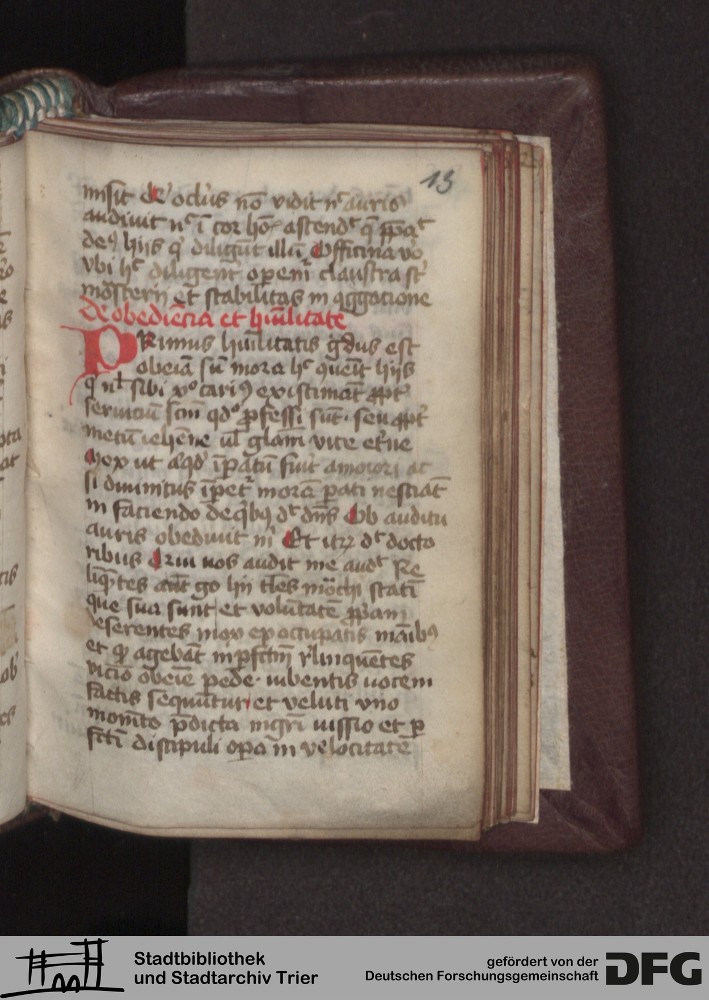 13
misit qd' oclus nō vidit nͨ auris
audiuit nͨ ī cor hoīs ascendͭ q̄ ppaͭ
deꝰ hijs qͥ diligūt illū Officina vͦo
vbi hͨ diligent' openͬ claustra sͭ
mōsterij et stabilitas in ꝯggatione
De obediēcia et hūilitate
PRimus hūilitatis gͣdus est
obeīa sn̄ mora hͨ ꝯuēit hijs
qͥ nͥl sibi xͦ cariꝰ existimāt ꝓpt'
seruiciū scm̄ qdͦ ꝓfessi sūt seu ꝓpt'
metū iehēne ul' glam̄ vite et'ne
Mox ut aͥqd' īpatū fuit a maiori ac
si diuinitus īpet' morā pati nesciāt
in faciendo de qͥbꝫ dͭ dn̄s Ob auditu
auris obediuit mͥ Et itꝫ dͭ docto
ribus Qui uos audit me audͭ Re
linquētes statī
que sua sunt et volūtatē ꝓpam
deserentes mox exoccupatis māibꝰ
et qͦ agebāt inpfctm̄ r'linquētes
vicīo obeīe pede iubentis uocem
factis sequūtur et veluti vno
momēto pdicta mgr̄i iussio et p
fcti discipuli opa in velocitate
Stadtbibliothek
und Stadtarchiv Trier
gefördert von der
Deutschen Forschungsgemeinschaft
DFG